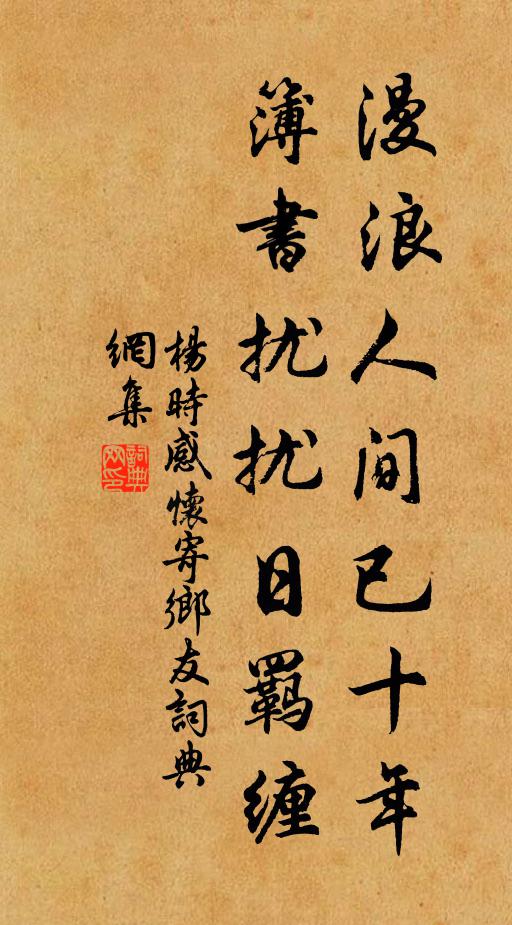 漫浪人间已十年
簿書扰扰日羁缠
楊時感懷寄鄉友詞典
網集
詞典
网印